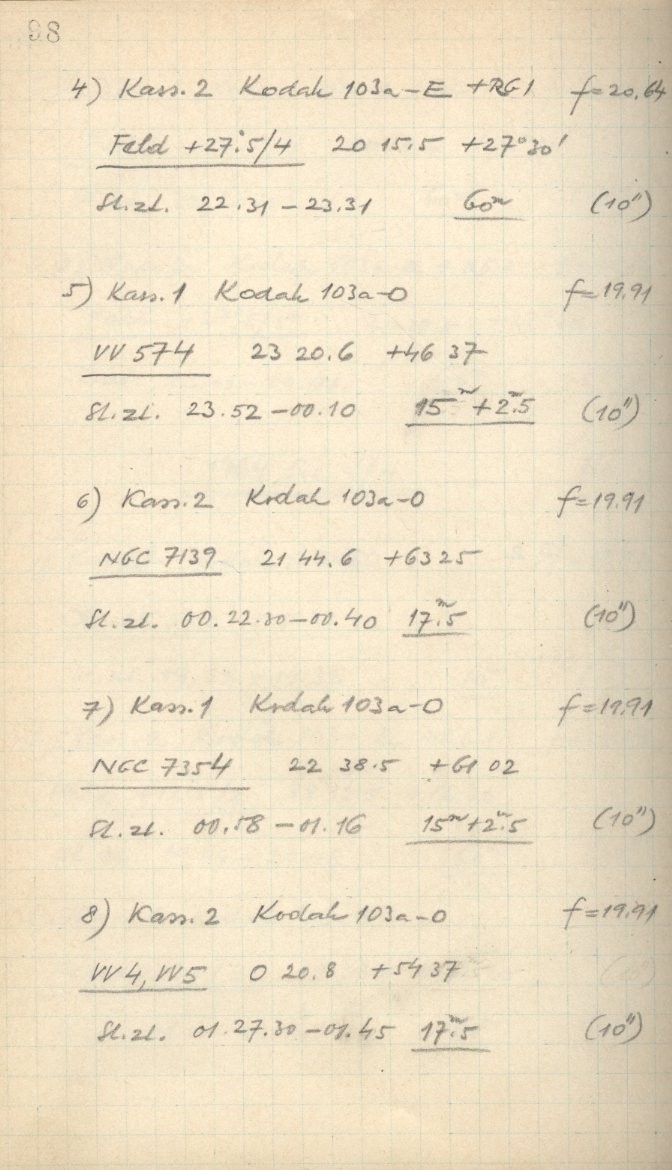 98
4) Kass. 2 Kodak 103a-E +RG1 f=20,64
Feld +27°.5/4 20 15.5 +27°30'
St.zt. 22.31 - 23.31 60ᵐ (10")
5) Kass. 1 Kodak 103a-O f=19.91
VV 574 23 20.6 +46 37
St.zt. 23.52 - 00.10 15ᵐ + 2ᵐ.5 (10")
6) Kass. 2 Kodak 103a-O f=19.91
NGC 7139 21 44.6 +63 25
St.zt. 00.22.30 - 00.40 17ᵐ.5 (10")
7) Kass. 1 Kodak 103a-O f=19.91
NGC 7354 22 38.5 +61 02
St.zt. 00.58 - 01.16 15ᵐ + 2ᵐ.5 (10")
8) Kass. 2 Kodak 103a-O f=19.91
VV 4, VV 5 0 20.8 +54 37
St.zt. 01.27.30 - 01.45 17ᵐ.5 (10")